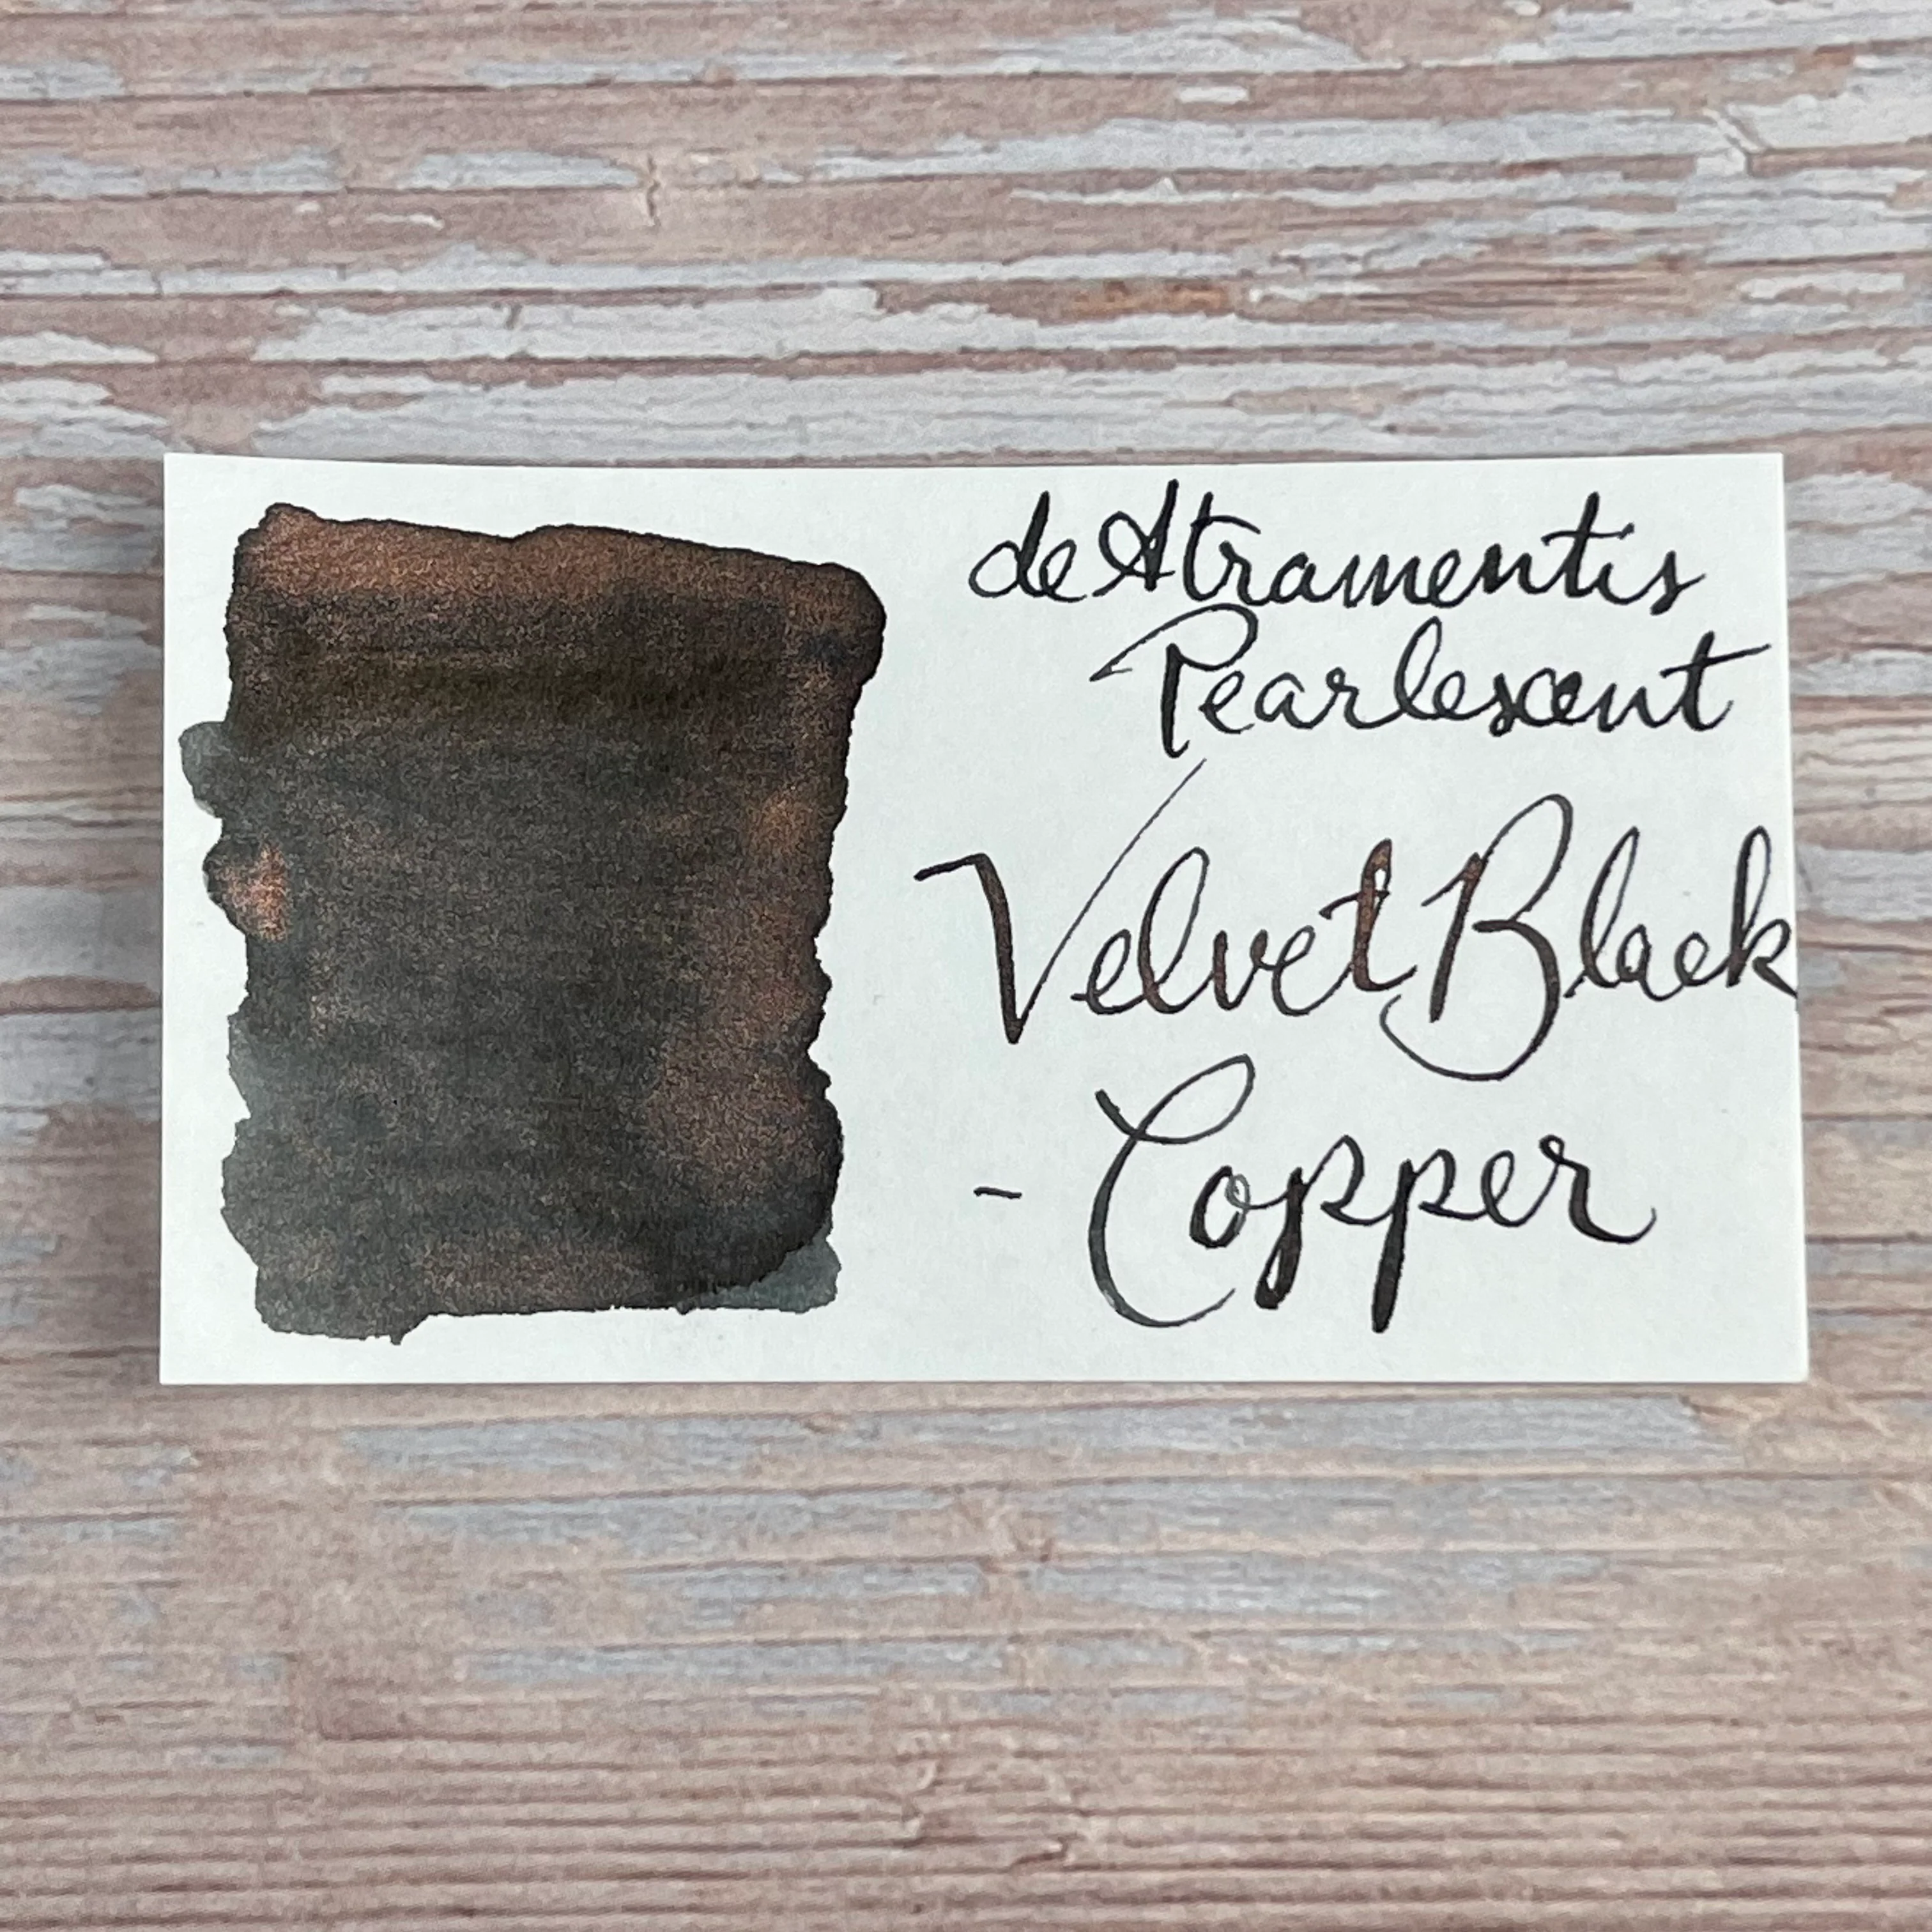 de Atramentis
Pearlescent
Velvet Black
- Copper